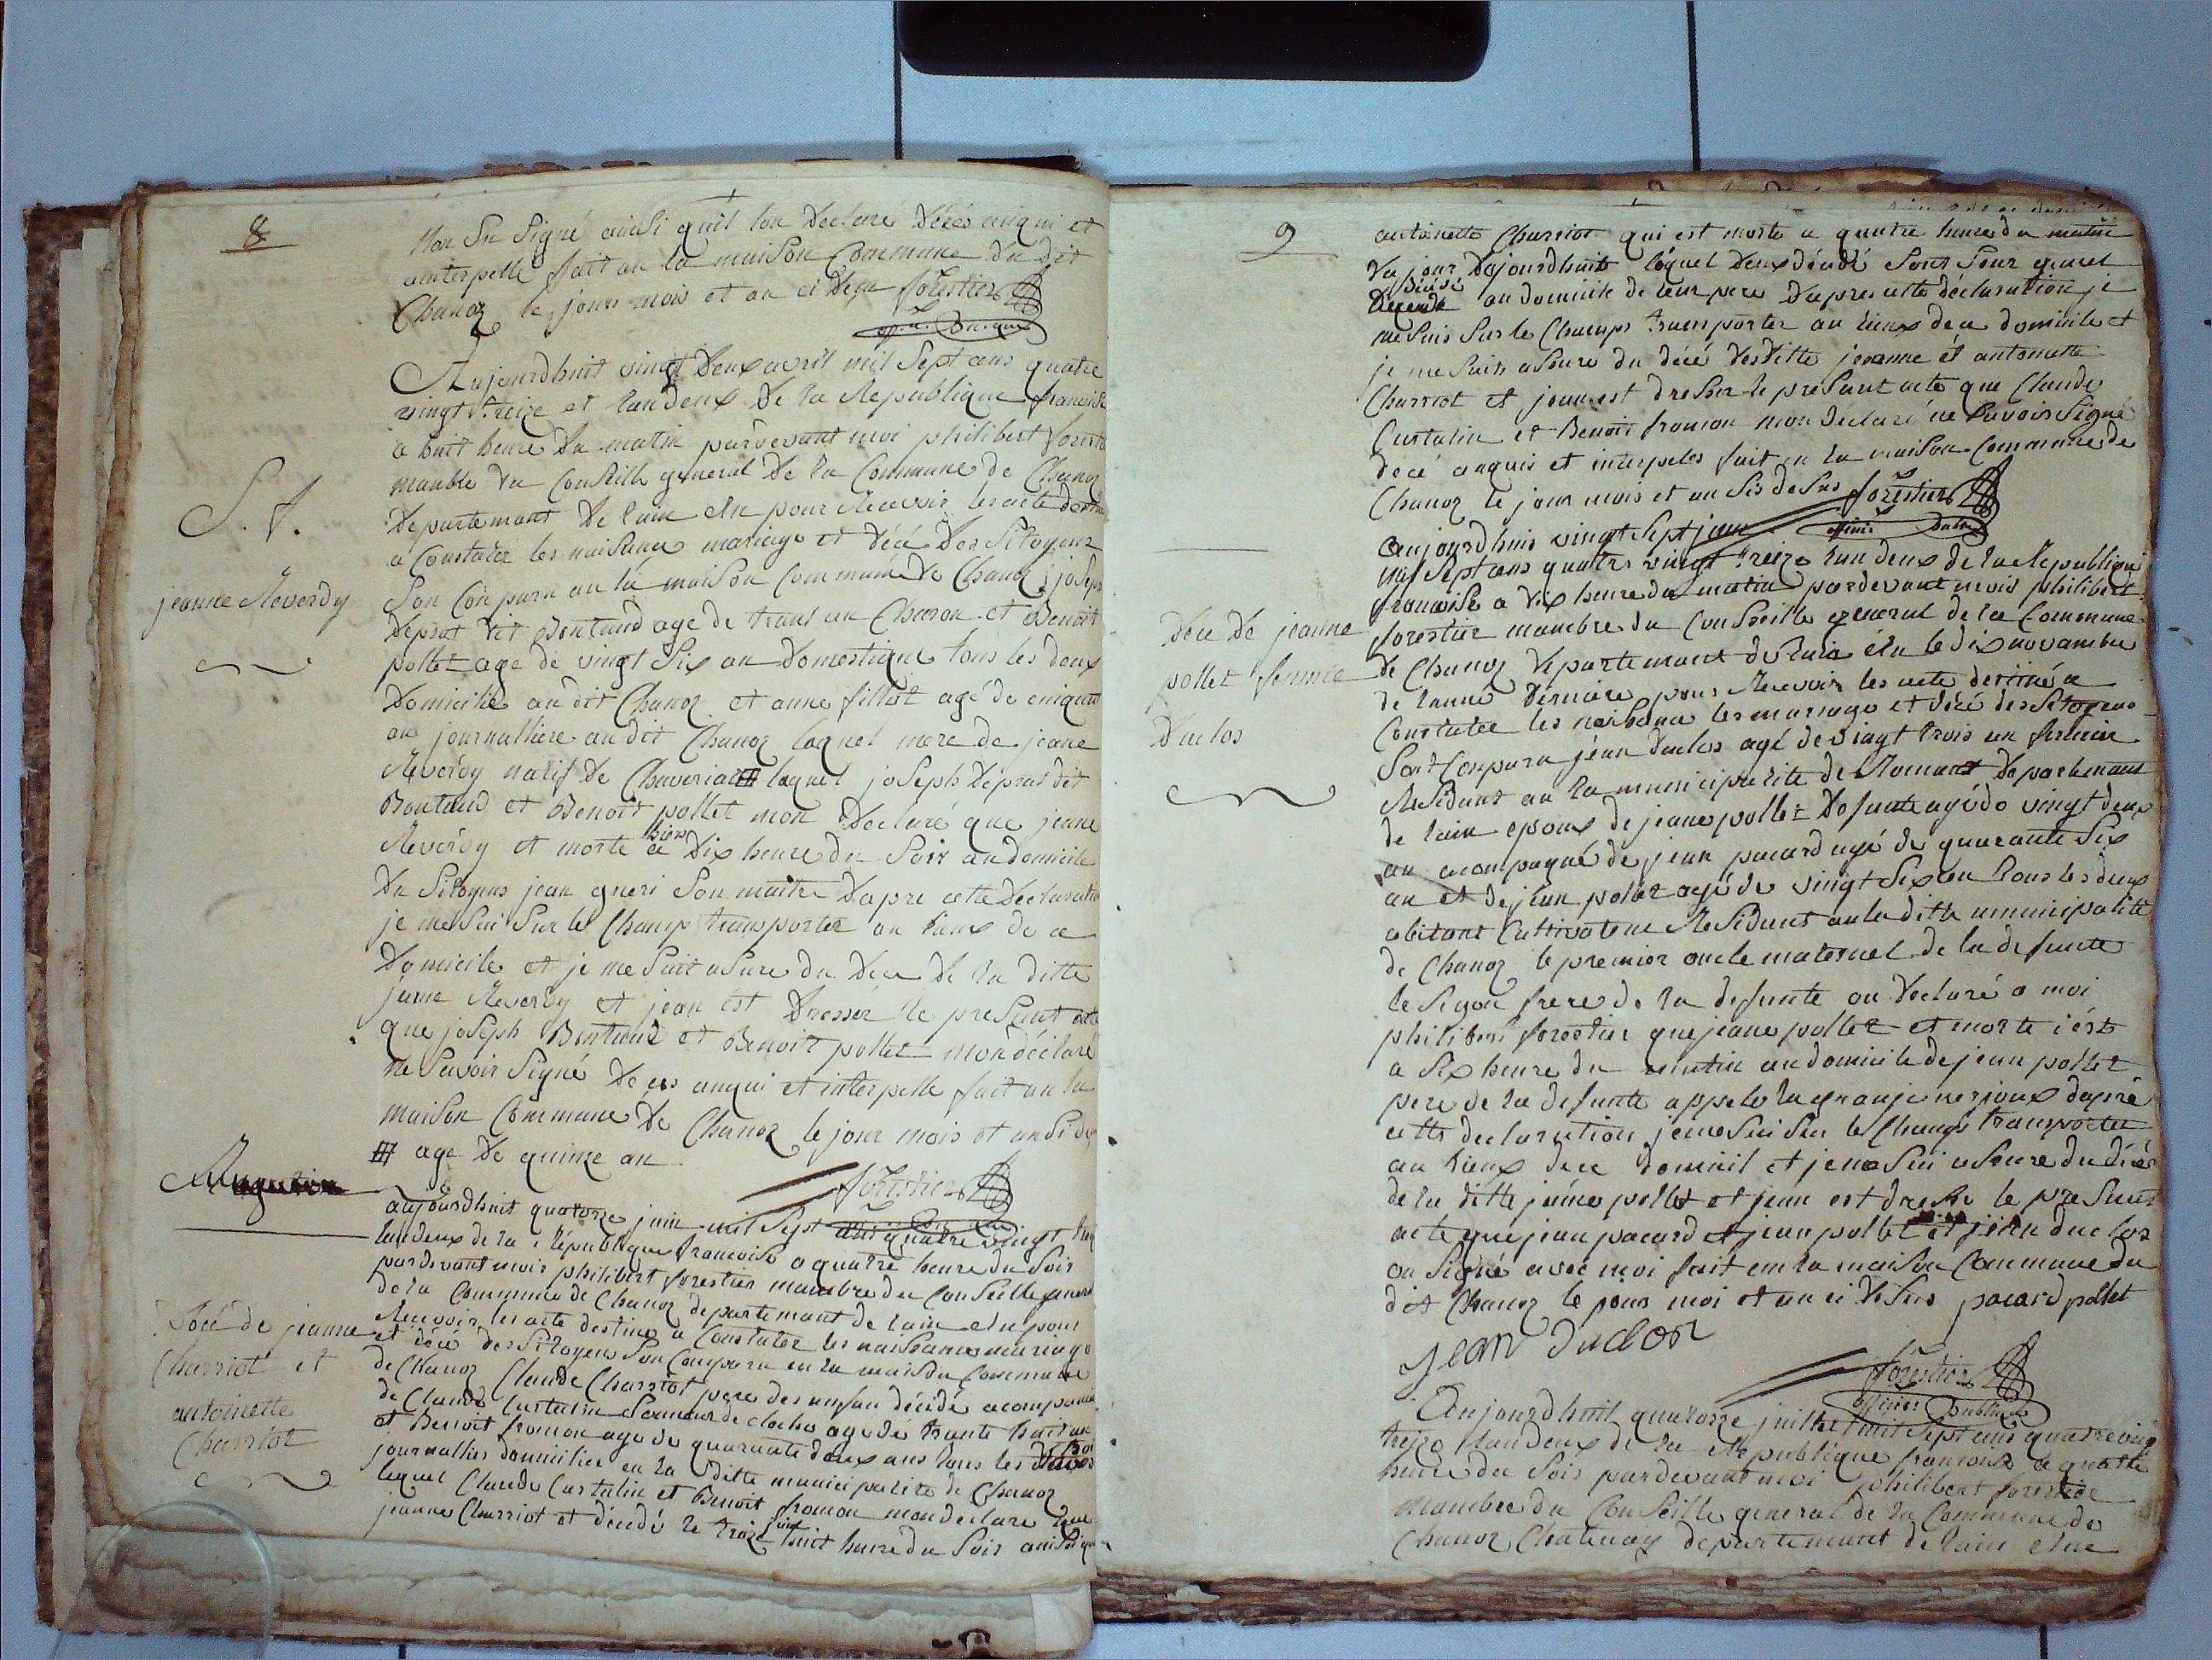 8
Non Su Signé ainsi quil lon declaré dece anqui et
ainterpelle fait an la maison Commune du dit
Chanoz le jour mois et an ci desu forestier
Aujourdhuit vingt deux avril mil sept ans quatre
vingt treize et lan deux de la Republique francoise
a huit heure du matin pardevant moi philibert foresti
manbre du Conseille general de la Commune de Chanoz
departemant de lain elu pour Recevoir les acte destine
a Constater les naisance mariage et décé des Sitoyens
Son Conparu an la maison Commune de Chanoz joseph
deprat dit Bontand age de trant an Charon et Benoit
pollet age de vingt Six an domestique tous les deux
domicilie au dit Chanoz et anne fillot agé de cinquant
an journalliere au dit Chanoz laquel mere de jeane
Reverdy natif de Chaveriat # laquel joseph deprat dit
Bontand et Benoit pollet mon declaré que jeane
Reverdy et morte hier a dix heure du Soir au domicile
du Sitoyens jean gueri Son maitre dapre cette declaration
je me Sui Sur le Champ transporter au lieux de ce
domicile et je me Suit asure du dece de la ditte
jeane Reverdy et jean est dresser le presant acte
que joseph Bontand et Benoit pollet mon déclaré
ne Savoir Signé de ces anqui et interpelle fait an la
maison Commune de Chanoz le jour mois et an Si de
# age de quinze an
forestier
S. A.
jeanne Reverdy
aujourdhuit quatorze juin mil Sept ans quatre vingt treize
lan deux de la République francoise a quatre heure du Soir
pardevant mois philibert forestier manbre du Conseille general
de la Commune de Chanoz departemant de lain elu pour
Recevoir les acte destine a Constater les naissance mariage
et décé des Sitoyens Son Conparu en la maison Commune
de Chanoz Claude Charriot pere des enfan décidé aconpanie
de Claude Curtalin Sonneur de cloche age de trante huit an
et Benoit fromon age de quarante deux ans tous les
journallier domicilier en la ditte municipalité de Chanoz
lequel Claude Curtalin et Benoit fromon mon declare que
jeanne Charriot et décidé le treize juin huit heure du Soir ainsi que
Décé de jeanne
Charriot et
antoinette
Charriot
9
antoinette Charriot qui est morte a quatre heure du matin
du jour dajourdhuit léquel deux décidé Sont Seur
au domicile de leur pere dapres cette déclaration je
me Suis Sur le Champs transporter au lieux de ce domicile et
je me Suits asure du décé desditte jeanne et antoinette
Charriot et jean est dresser le presant acte que Claude
Curtalin et Benoit fromon mon declaré ne Savoir Signé
décé anquis et interpeler fait en la maison Commune de
Chanoz le jour mois et an Sis desus forestier
aujourdhuis vingt Sept juin
mil Sept ans quatre vingt treize lan deux de la Republique
francoise a dix heure du matin pardevant mois philibert
forestier manbre du Conseille general de la Commune
de Chanoz departemant de lain élu le dix novambre
de lanné derniere pour Recevoir les acte destiné a
Constater les naissance les mariage et décé des Sitoyens
Sont Conparu jean duclos agé de vingt trois an fermier
Residant an la municipalite de Romant departemant
de lain epoux de jeane pollet defunte agé de vingt deux
an aconpagné de jean pacard agé de quarante Six
an et de jean pollet agé de vingt Six an tous les deux
abitant Cultivateur Residant an la ditte municipalité
de Chanoz le premier oncle maternel de la defunte
le Segon frere de la defunte on declaré a moi
philibert forestier que jeane pollet et morte
a Six heure du matin au domicile de jean pollet
pere de la defunte appele la granje dapré
cette declaration je me Sui Sur le Champs transporter
au lieux de ce domicil et je me Sui asure du décé
de la ditte jeane pollet et jean est dresse le presant
acte que jean pacard et jean pollet et jean duclos
on Signé avec moi fait en la maison Commune du
dit Chanoz le jour moi et an ci desus pacard pollet
jean duclos
forestier
officier publique
Décé de jeanne
pollet femme
Duclos
Aujourdhuit quatorze juillet mil Sept ans quatre vingt
treize lan deux de la Republique francoise a quatre
heure du Soir pardevant moi philibert forestier
manbre du Conseille general de la Commune de
Chanoz Chatenay departemant de lain elue